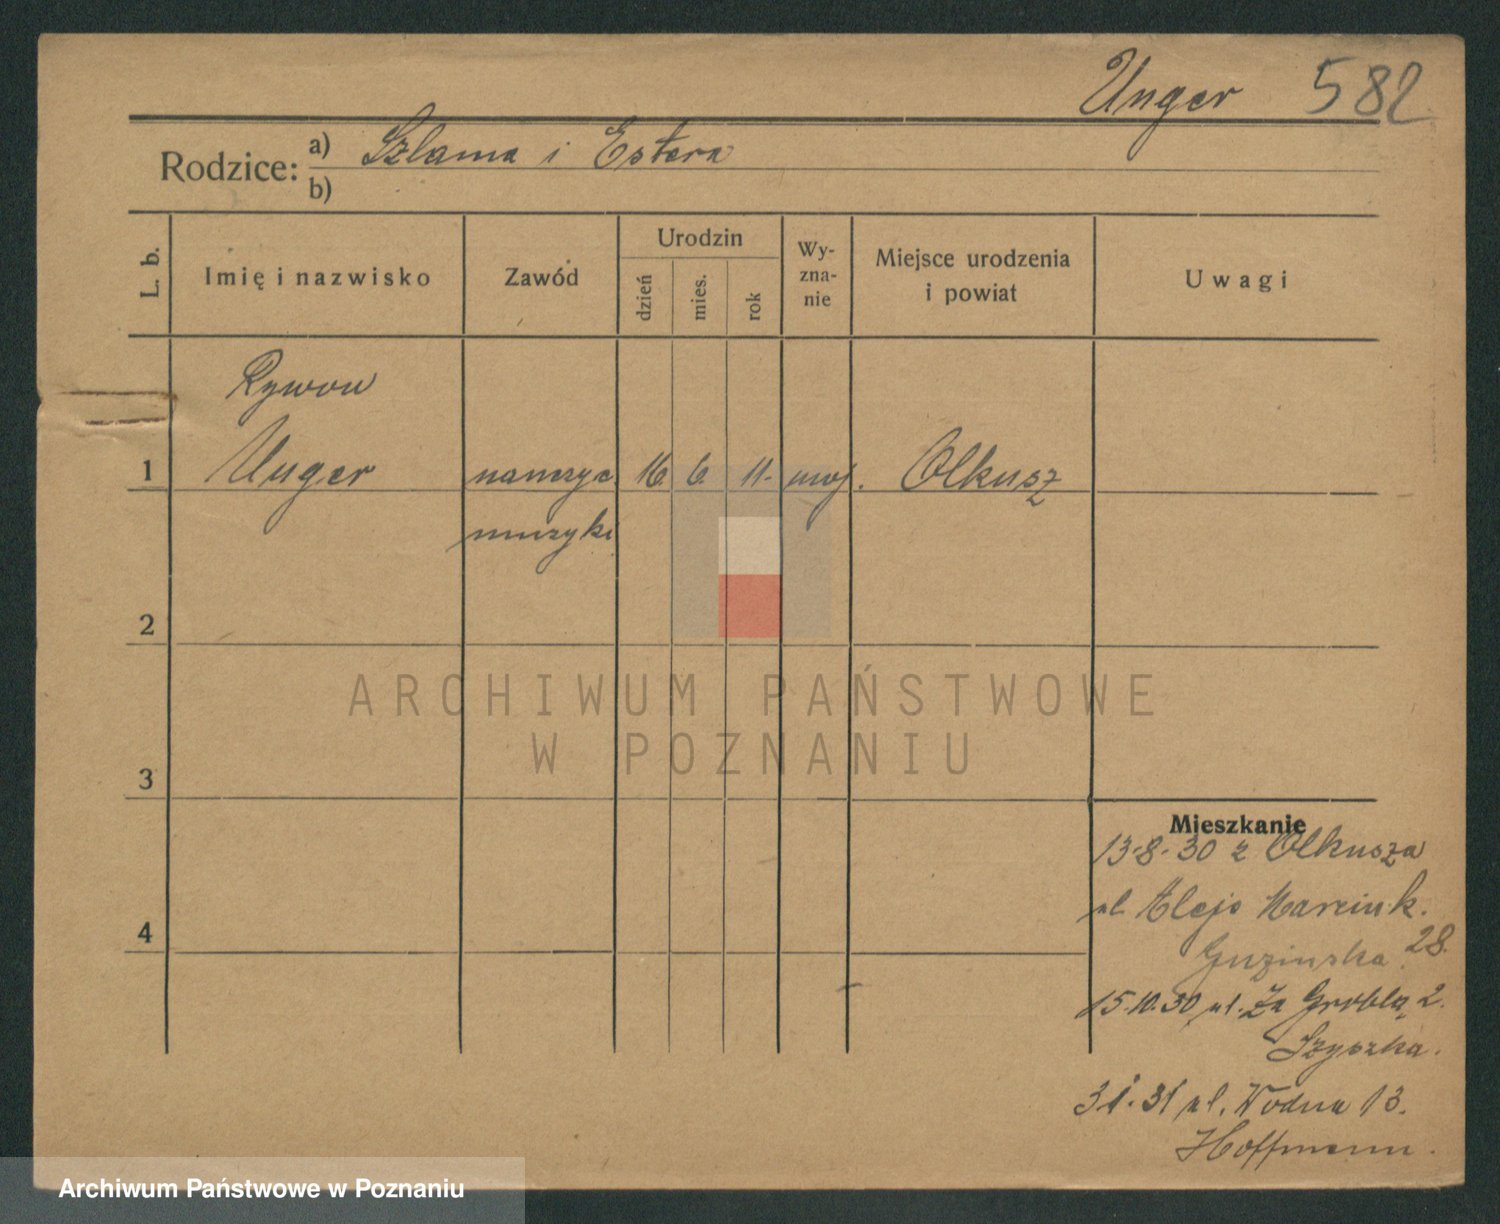 Unger 582
Rodzice: a) Szlama i Estera
b)
L. b. Imię i nazwisko Zawód Urodzin dzień mies. rok Wy-zna-nie Miejsce urodzenia i powiat Uwagi
Rywon
1 Unger nauczyc. 16 6. 11. moj. Olkusz
muzyki
2
ARCHIWUM PAŃSTWOWE
W POZNANIU
3
Mieszkanie
13-8-30 z Olkusza
ul. Aleje Marcink.
4
Guzinska 28.
15.10.30 ul. Za Groblą 2.
Szyszka.
3 1. 31 ul. Wodna 13.
Hoffmann.
Archiwum Państwowe w Poznaniu